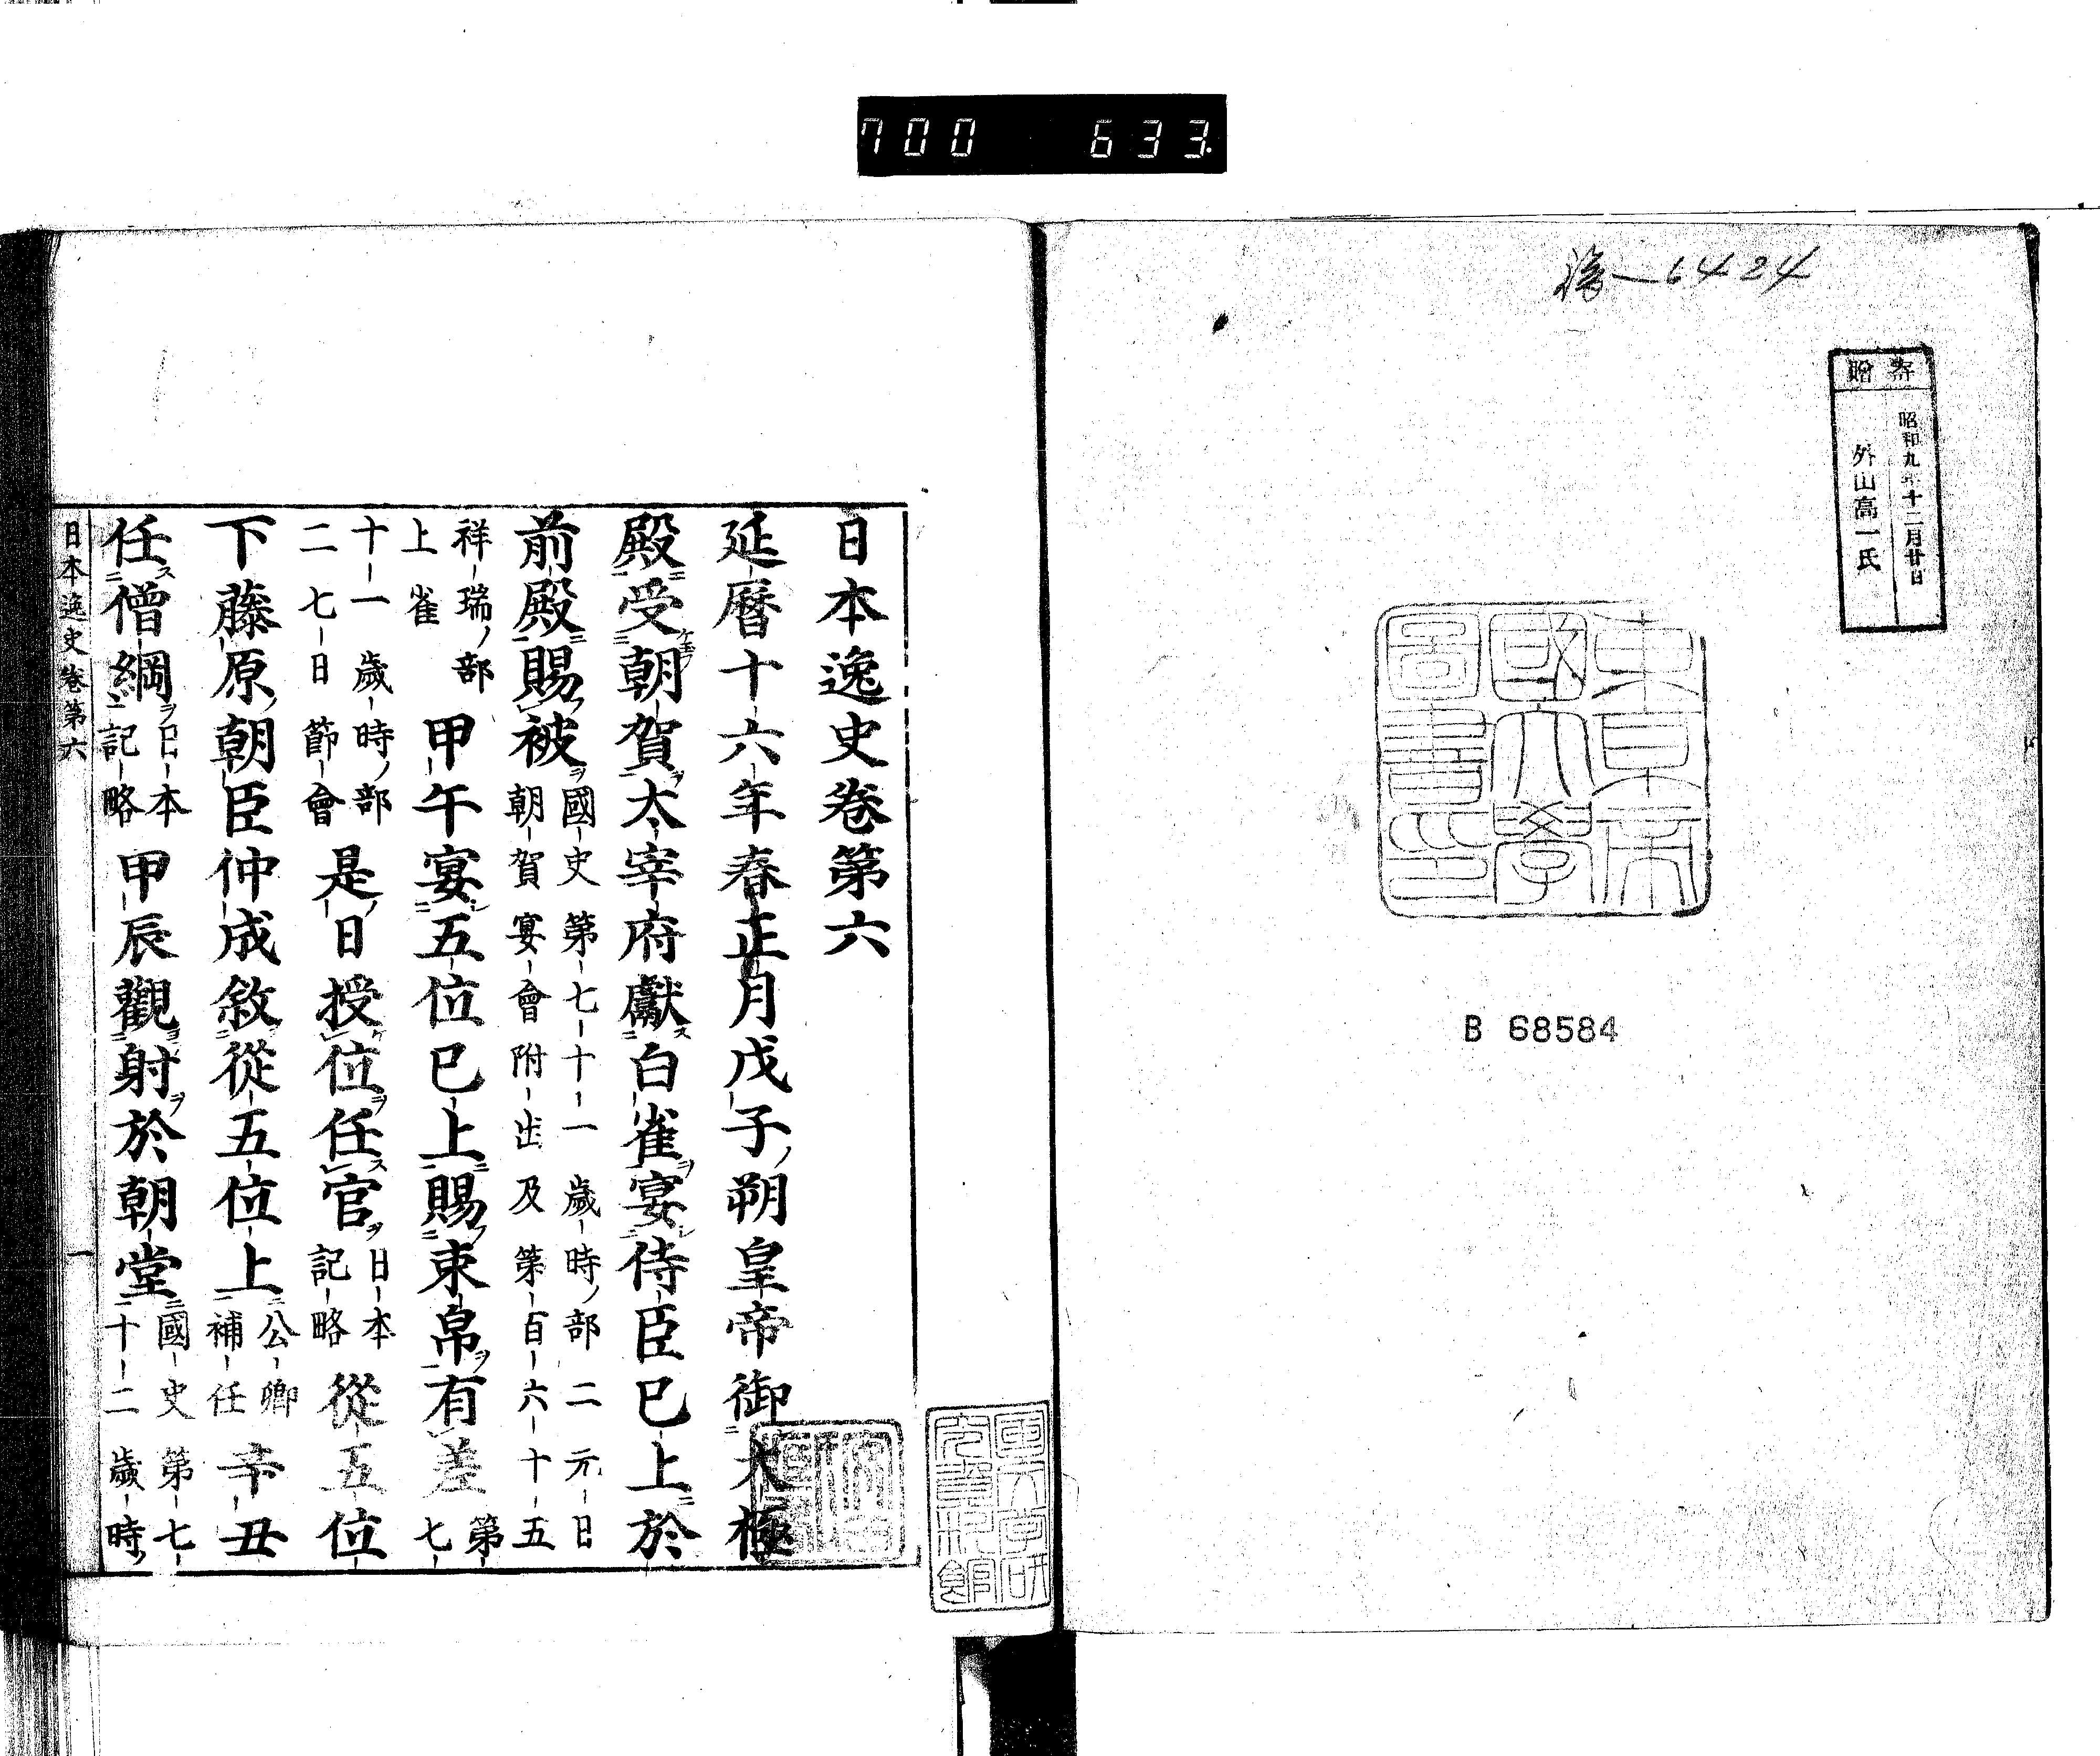 700 633
6424
寄贈
昭和九年十二月廿日
外山高一氏
東京帝
國大學
圖書印
B 68584
日本逸史卷第六
延曆十六年春正月戊子朔皇帝御大極
殿受朝賀太宰府獻白雀宴侍臣已上於
前殿賜被國史第七十一歲時部二元日
朝賀宴會附出及第百六十五
祥瑞部
上雀
甲午宴五位已上賜束帛有差第
七
十一歲時部
二七日節會
是日授位任官日本
記略
從五位
下藤原朝臣仲成敘從五位上公卿
補任
辛丑
任僧綱日本
記略
甲辰觀射於朝堂國史第七
十二歲時
日本逸史卷第六
一